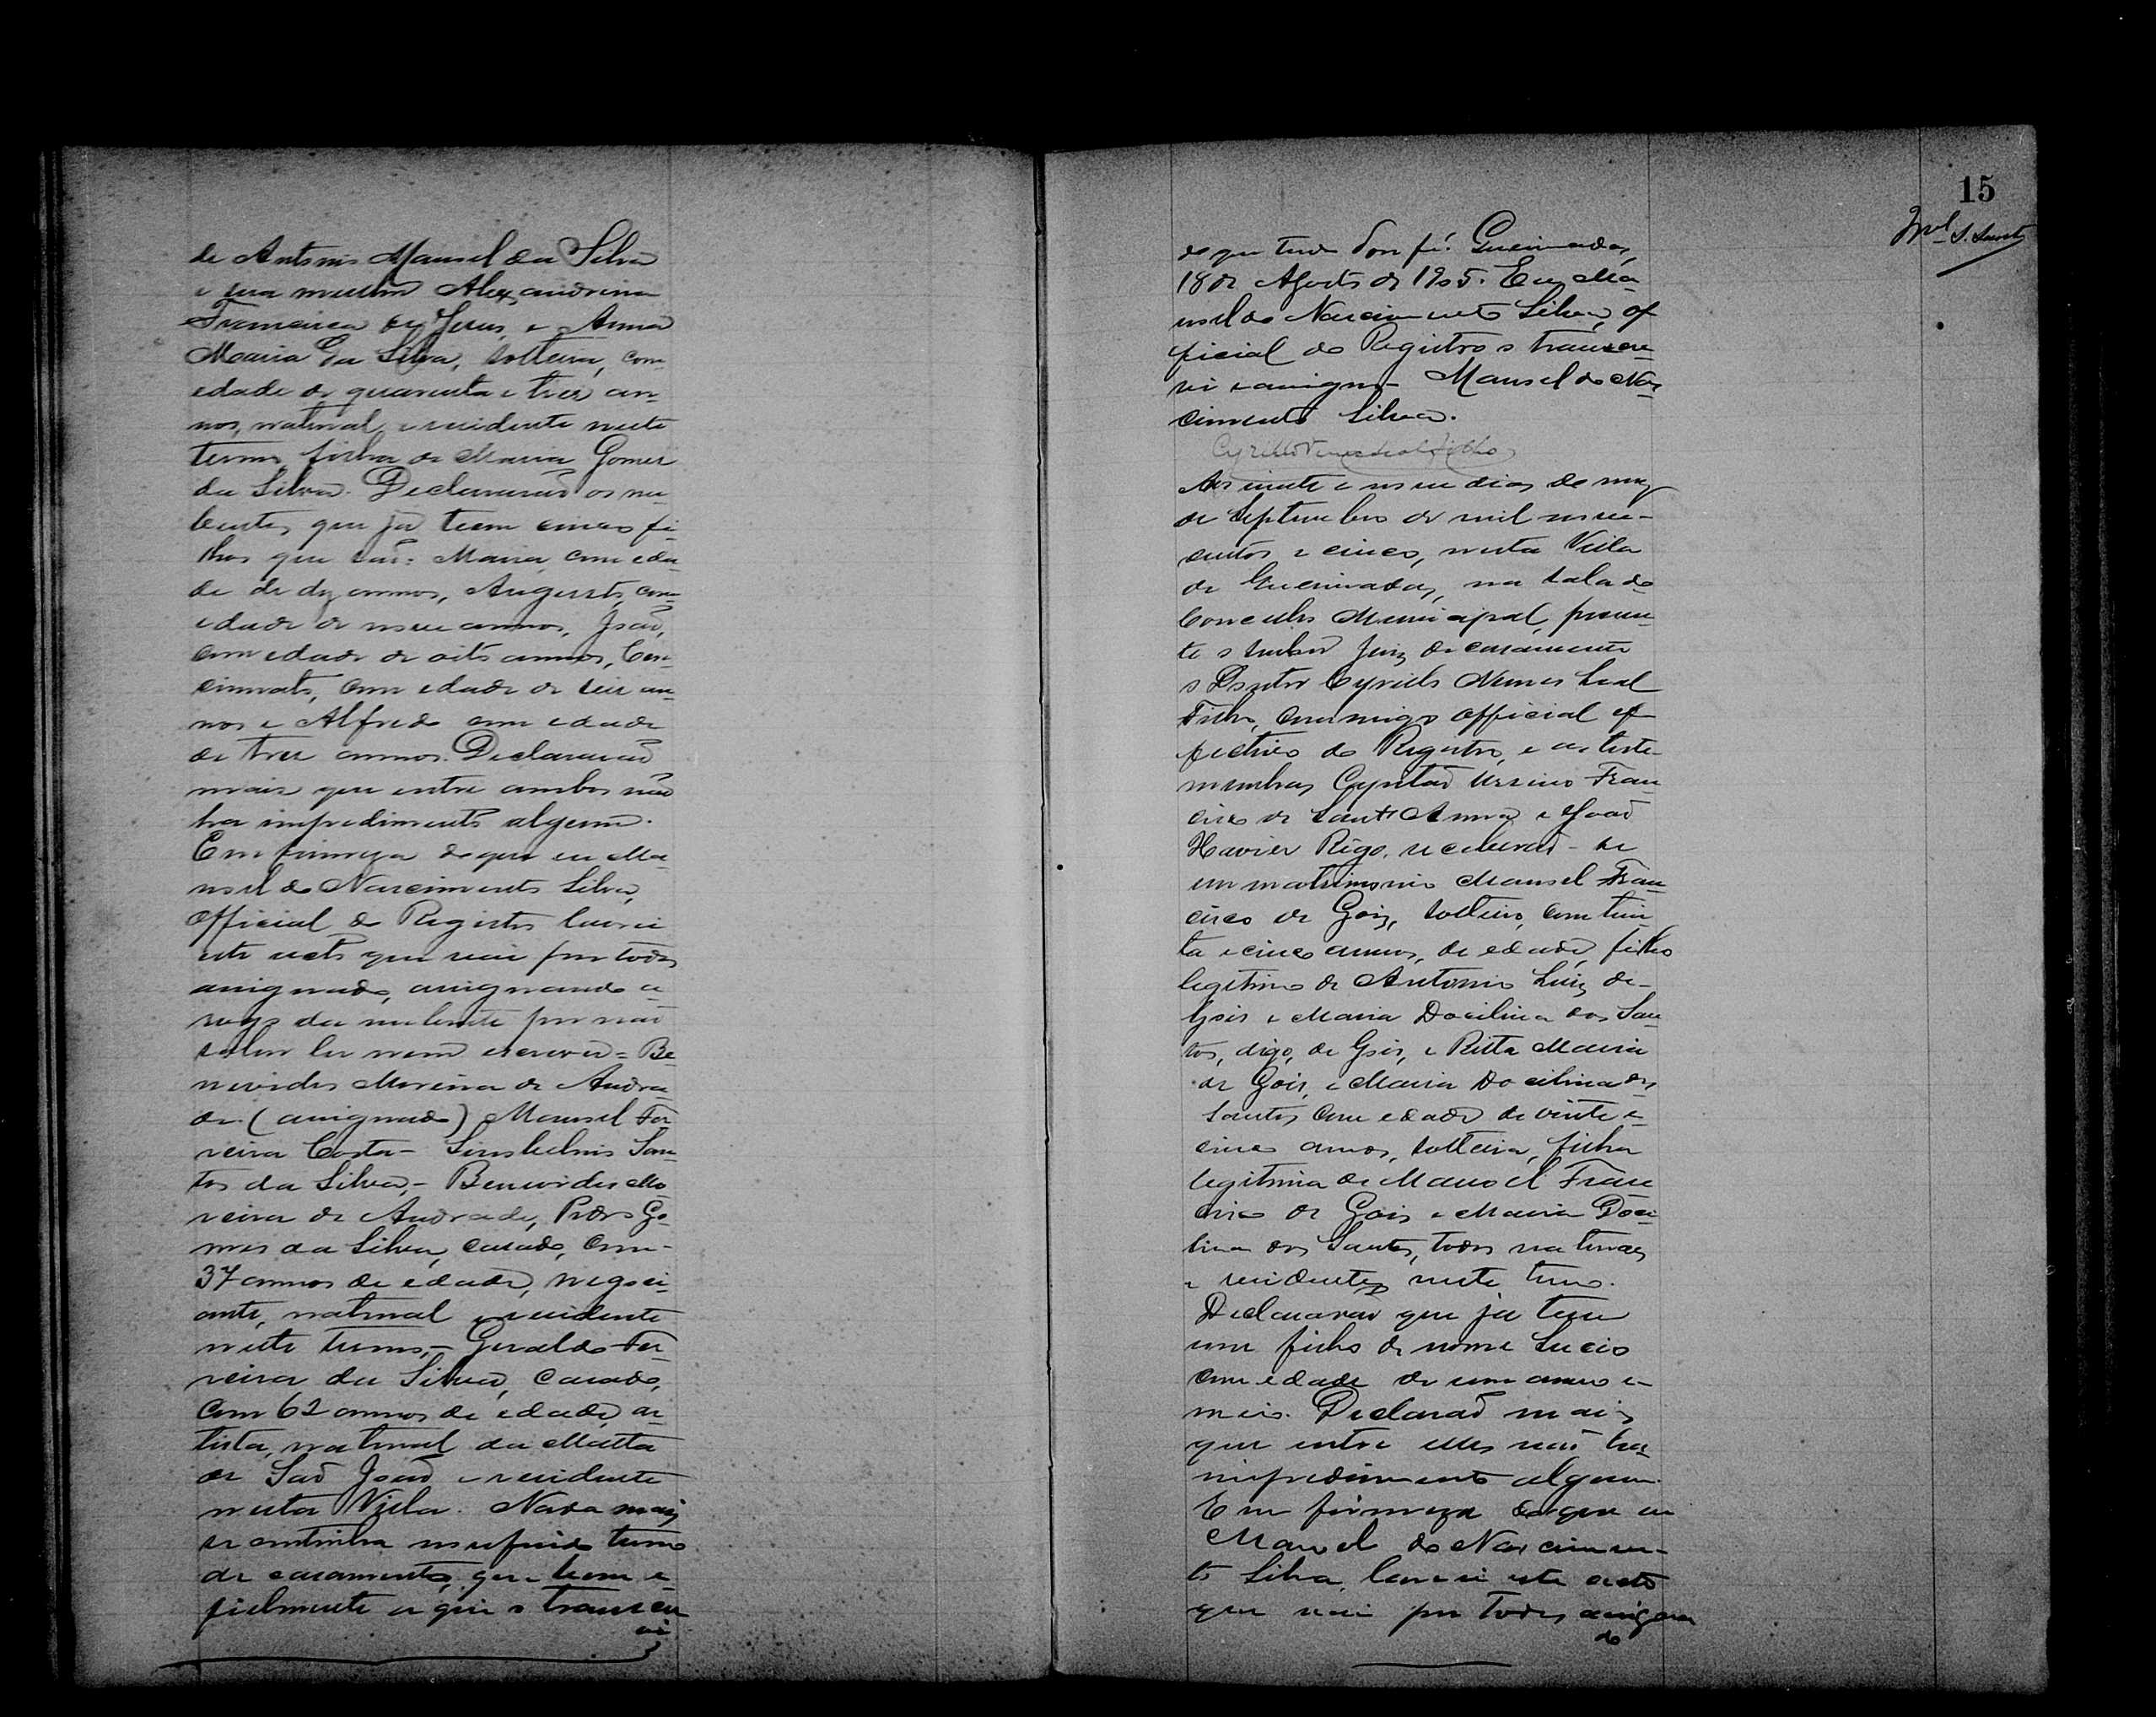 de Antonio Manoel da Silva
e sua mulher Alexandrina
Francisca de Jesus, e Anna
Maria da Silva, solteira, com
edade de quarenta e tres an-
nos, natural e residente neste
termo, filha de Maria Gomes
da Silva. Declararaõ os nu-
bentes, que ja teem cinco fi-
lhos que saõ: Maria, com eda-
de de dez annos, Augusto, com
edade de nove annos, Joaõ,
com edade de oito annos,
com edade de seis an-
nos e Alfredo com edade
de tres annos. Declararaõ
mais que entre ambos naõ
ha impedimento algum.
Em firmeza do que eu Ma-
noel do Nascimento Silva,
Official do Registro lavrei
este acto que vai por todos
assignado, assignando a
rogo da nubente por naõ
saber ler nem escrever = Be
nevides Moreira de Andra-
de. (assignado) Manoel Fer
reira Costa - San
tos da Silva, - Benevides Mo
reira de Andrade, Pedro Go-
mes da Silva, casado, com
37 annos de edade, negoci-
ante, natural e residente
neste termo, - Geraldo Fer-
reira da Silva, casado,
com 62 annos de edade, ar-
tista, natural da Matta
de Saõ Joaõ e residente
nesta Villa. Nada mais
se continha no referido termo
de casamento, que bem e
fielmente aqui o transcre
vi
15
Mel S. Santos
do que tudo dou fé. Queimadas,
18 de Agosto de 1905. Eu, Ma-
noel do Nascimento Silva, of
ficial do Registro o transcre-
vi e assigno - Manoel do Nas-
cimento Silva.
Cyrillo Nunes Leal Filho
Aos vinte e nove dias do mez
de Septembro de mil nove-
centos e cinco, nesta Villa
de Queimadas, na sala do
Concelho Municipal, presen-
te o senhor Juiz de casamento
o Doutor Cyrillo Nunes Leal
Filho, commigo official ef-
fectivo do Registro, e as teste-
munhas Capitaõ Ursino Fran-
cisco de Sant'Anna e Joaõ
Xavier Rigo, receberaõ-se
em matrimonio Manoel Fran-
cisco de Gois, solteiro, com trin
ta e cinco annos, de edade, filho
legitimo de Antonio Luiz de-
Gois e Maria Docilina dos San-
tos, digo, de Gois, e Ritta Maria
de Gois, e Maria Docilina dos
Santos, com edade de vinte e
cinco annos, solteira, filha
legitima de Manoel Fran
cisco de Gois e Maria Doci-
lina dos Santos, todos naturaes
e residentes neste termo.
Declararaõ que ja teem
um filho de nome Lucio
com edade de um anno e
meio. Declaraõ mais
que entre elles naõ ha
impedimento algum.
Em firmeza do que eu
Manoel do Nascimen-
to Silva, lavrei este acto
que vai por todos assigna
do